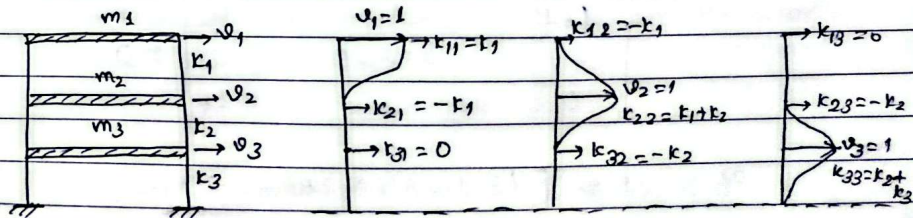 m1
v1
k1
m2
v2
k2
m3
v3
k3
v1=1
k11=k1
k21=-k1
k31=0
k12=-k1
v2=1
k22=k1+k2
k32=-k2
k13=0
k23=-k2
v3=1
k33=k2+
k3